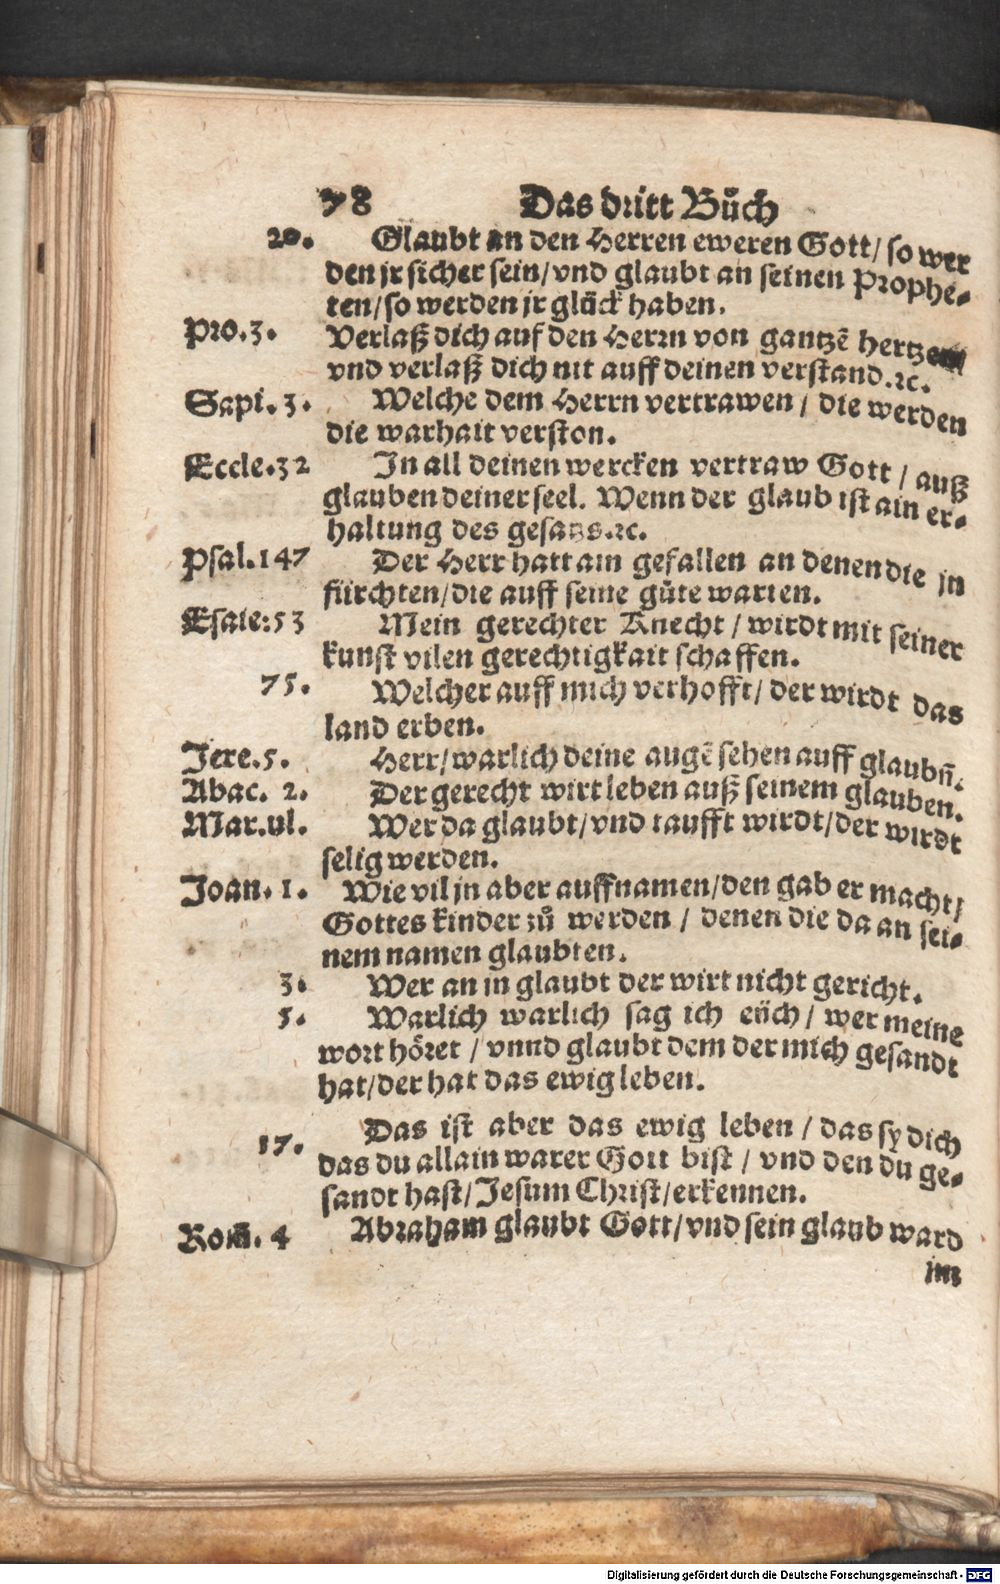 78 Das dritt Bůch
20. Glaubt an den Herren eweren Gott/ so wer
den jr sicher sein/ vnd glaubt an seinen Prophe-
ten/ so werden jr glück haben.
Pro. 3. Verlaß dich auf den Herrn von gantzē hertzen
vnd verlaß dich nit auff deinen verstand. ꝛc.
Sapi. 3. Welche dem Herrn vertrawen / die werden
die warhait verston.
Eccle. 32 In all deinen wercken vertraw Gott / auß
glauben deiner seel. Wenn der glaub ist ain er-
haltung des gesatzs. ꝛc.
Psal. 147 Der Herr hatt ain gefallen an denen die jn
fürchten/ die auff seine güte warten.
Esaie: 53 Mein gerechter Knecht / wirdt mit seiner
kunst vilen gerechtigkait schaffen.
75. Welcher auff mich verhofft/ der wirdt das
land erben.
Jere. 5. Herr/ warlich deine augē sehen auff glaubn̄.
Abac. 2. Der gerecht wirt leben auß seinem glauben.
Mar. vl. Wer da glaubt/ vnd taufft wirdt/ der wirdt
selig werden.
Joan. 1. Wie vil jn aber auffnamen/ den gab er macht/
Gottes kinder zů werden / denen die da an sei-
nem namen glaubten.
3. Wer an in glaubt der wirt nicht gericht.
5. Warlich warlich sag ich eüch / wer meine
wort höret / vnnd glaubt dem der mich gesandt
hat/ der hat das ewig leben.
17. Das ist aber das ewig leben / das sy dich
das du allain warer Gott bist / vnd den du ge-
sandt hast/ Jesum Christ/ erkennen.
Rom̄. 4 Abraham glaubt Gott/ vnd sein glaub ward
im
Digitalisierung gefördert durch die Deutsche Forschungsgemeinschaft - DFG